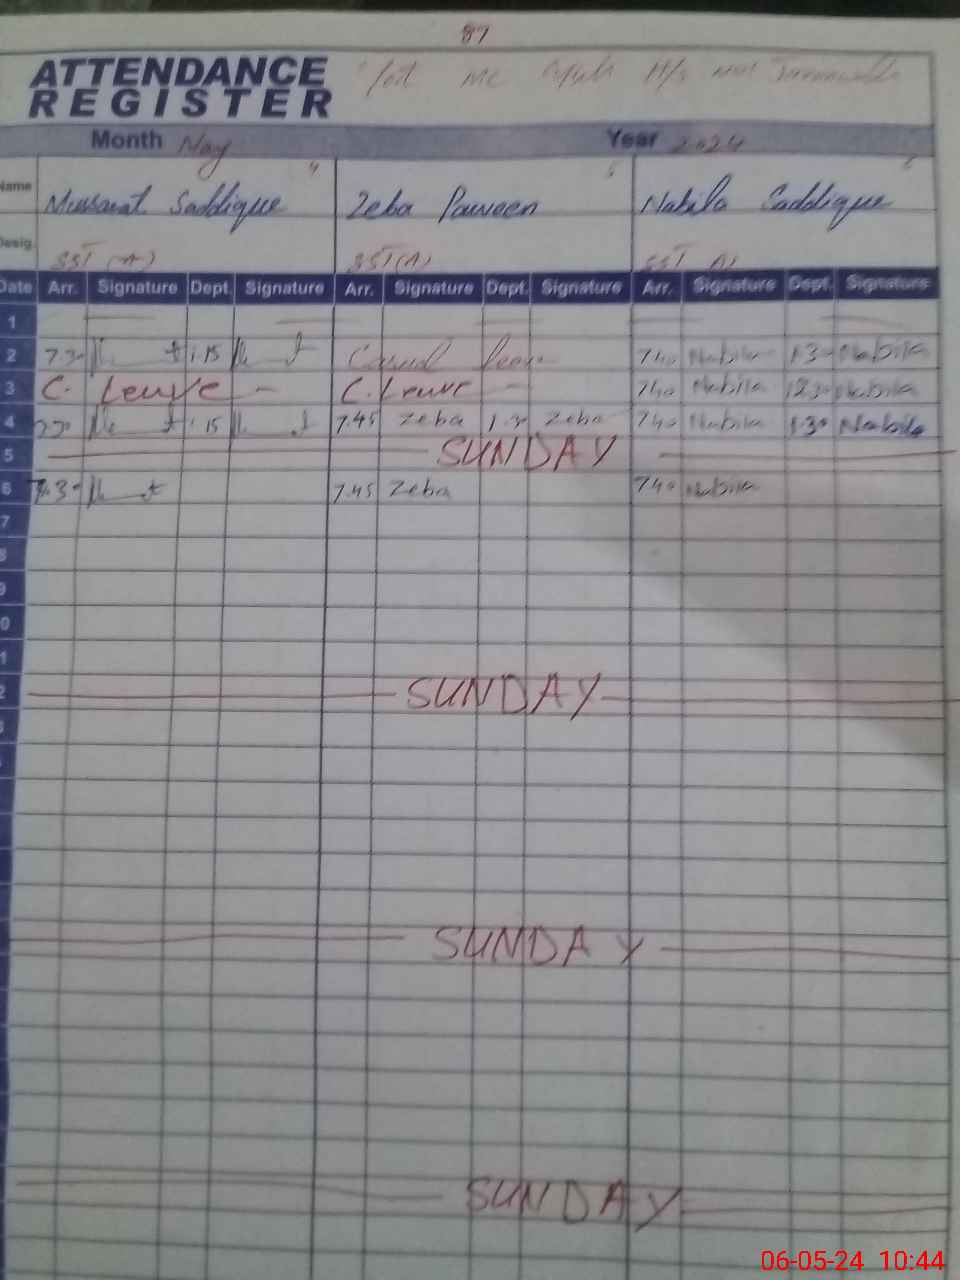 87
ATTENDANCE
REGISTER
Month May Year 2024
Name Musarat Saddique Zeba Parveen Nabila Saddique
Desig. SST (A) SST (A) SST A)
Date Arr. Signature Dept. Signature Arr. Signature Dept. Signature Arr. Signature Dept. Signature
1
2 1.15 Casual leave 7.40 Nabila 1.30 Nabila
3 C. Leave C. Leave 7.40 Nabila 12.30 Nabila
4 1.15 7.45 Zeba 1.30 Zeba 7.40 Nabila 1.30 Nabila
5 SUNDAY
6 7.30 7.45 Zeba 7.40 Nabila
7
8
9
0
1
2 SUNDAY
SUNDAY
SUNDAY
06-05-24 10:44